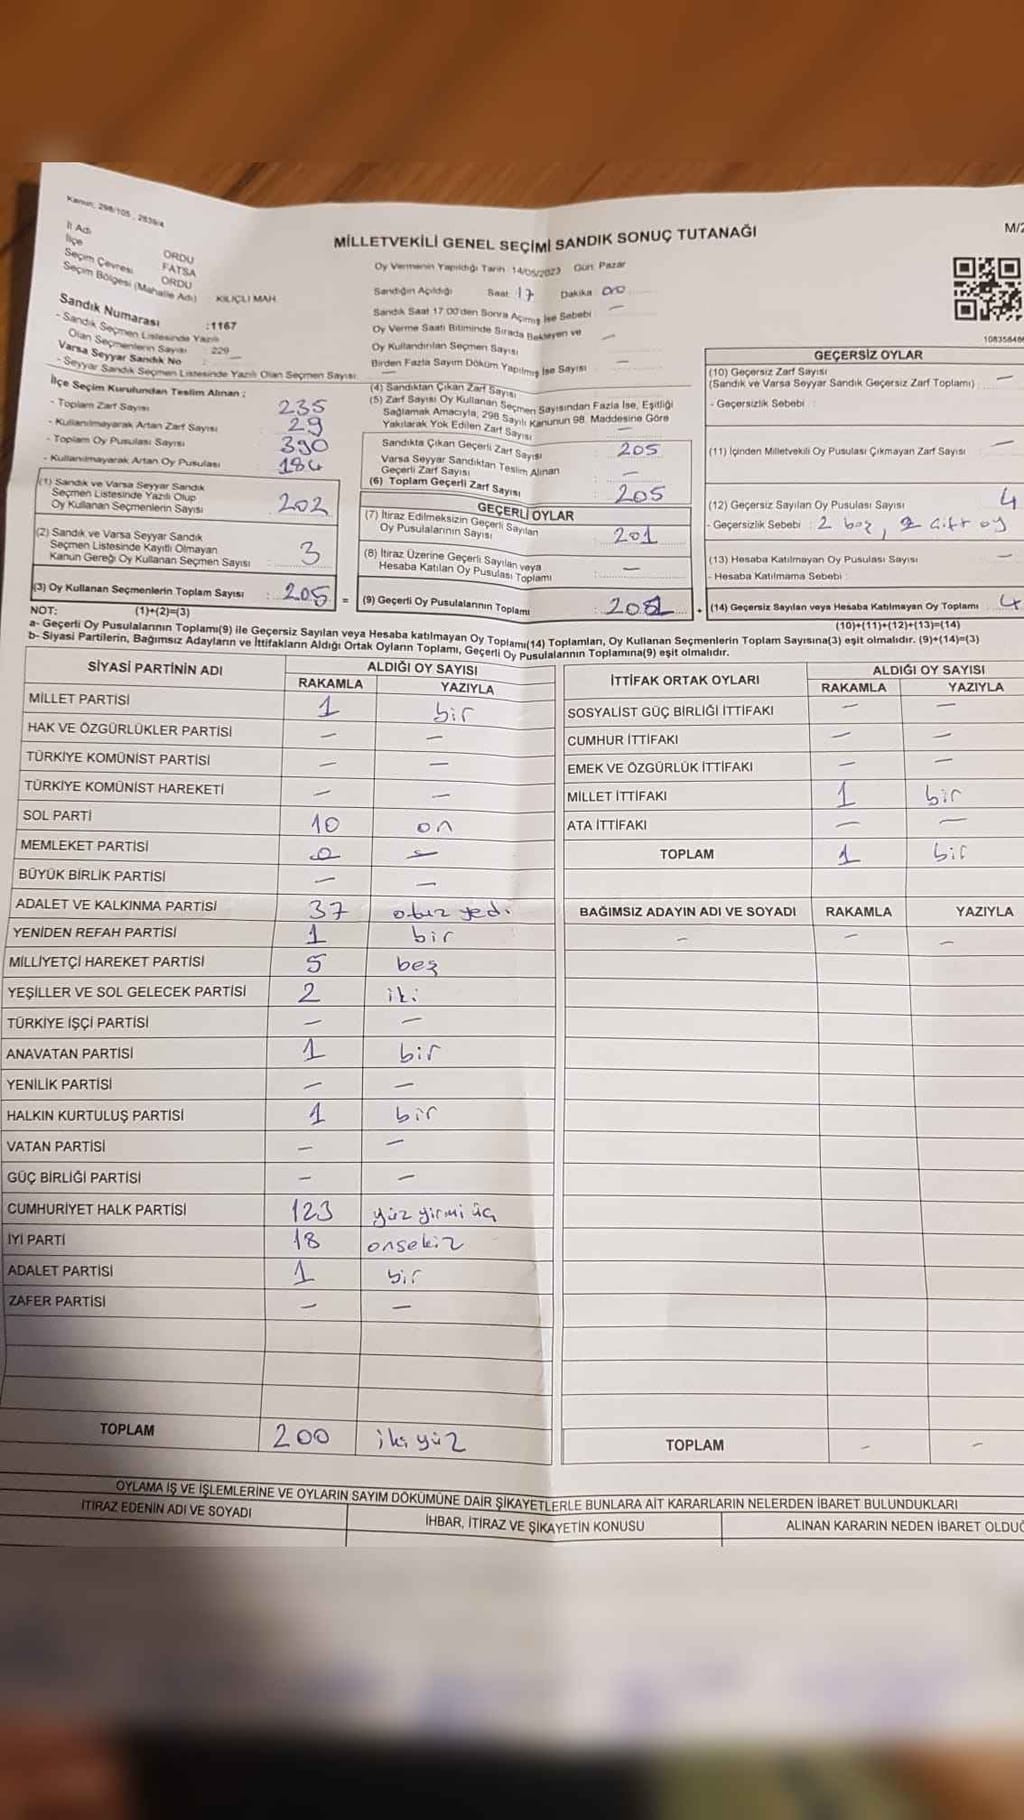 Kanun; 298/105, 2839/4
M/2
MİLLETVEKİLİ GENEL SEÇİMİ SANDIK SONUÇ TUTANAĞI
İl Adı ORDU
İlçe FATSA
Seçim Çevresi ORDU
Seçim Bölgesi (Mahalle Adı) KILIÇLI MAH.
Sandık Numarası :1167
- Sandık Seçmen Listesinde Yazılı
Olan Seçmenlerin Sayısı : 229
Varsa Seyyar Sandık No : —
- Seyyar Sandık Seçmen Listesinde Yazılı Olan Seçmen Sayısı: —
Oy Vermenin Yapıldığı Tarih 14/05/2023 Gün: Pazar
Sandığın Açıldığı Saat 17 Dakika 00
Sandık Saat 17:00'den Sonra Açımış İse Sebebi —
Oy Verme Saati Bitiminde Sırada Bekleyen ve
Oy Kullandırılan Seçmen Sayısı —
Birden Fazla Sayım Döküm Yapılmış İse Sayısı —
İlçe Seçim Kurulundan Teslim Alınan ;
- Toplam Zarf Sayısı 235
- Kullanılmayarak Artan Zarf Sayısı 29
- Toplam Oy Pusulası Sayısı 390
- Kullanılmayarak Artan Oy Pusulası 184
(1) Sandık ve Varsa Seyyar Sandık
Seçmen Listesinde Yazılı Olup
Oy Kullanan Seçmenlerin Sayısı 202
(2) Sandık ve Varsa Seyyar Sandık
Seçmen Listesinde Kayıtlı Olmayan
Kanun Gereği Oy Kullanan Seçmen Sayısı 3
(3) Oy Kullanan Seçmenlerin Toplam Sayısı : 205 =
(1)+(2)=(3)
(4) Sandıktan Çıkan Zarf Sayısı
(5) Zarf Sayısı Oy Kullanan Seçmen Sayısından Fazla İse, Eşitliği
Sağlamak Amacıyla, 298 Sayılı Kanunun 98. Maddesine Göre
Yakılarak Yok Edilen Zarf Sayısı —
Sandıkta Çıkan Geçerli Zarf Sayısı 205
Varsa Seyyar Sandıktan Teslim Alınan
Geçerli Zarf Sayısı —
(6) Toplam Geçerli Zarf Sayısı 205
GEÇERLİ OYLAR
(7) İtiraz Edilmeksizin Geçerli Sayılan
Oy Pusulalarının Sayısı 201
(8) İtiraz Üzerine Geçerli Sayılan veya
Hesaba Katılan Oy Pusulası Toplamı —
(9) Geçerli Oy Pusulalarının Toplamı : 201 +
GEÇERSİZ OYLAR
(10) Geçersiz Zarf Sayısı
(Sandık ve Varsa Seyyar Sandık Geçersiz Zarf Toplamı) —
- Geçersizlik Sebebi :
(11) İçinden Milletvekili Oy Pusulası Çıkmayan Zarf Sayısı —
(12) Geçersiz Sayılan Oy Pusulası Sayısı 4
- Geçersizlik Sebebi : 2 boş, 2 çift oy
(13) Hesaba Katılmayan Oy Pusulası Sayısı —
- Hesaba Katılmama Sebebi :
(14) Geçersiz Sayılan veya Hesaba Katılmayan Oy Toplamı 4
(10)+(11)+(12)+(13)=(14)
NOT:
a- Geçerli Oy Pusulalarının Toplamı(9) ile Geçersiz Sayılan veya Hesaba katılmayan Oy Toplamı(14) Toplamları, Oy Kullanan Seçmenlerin Toplam Sayısına(3) eşit olmalıdır. (9)+(14)=(3)
b- Siyasi Partilerin, Bağımsız Adayların ve İttifakların Aldığı Ortak Oyların Toplamı, Geçerli Oy Pusulalarının Toplamına(9) eşit olmalıdır.
SİYASİ PARTİNİN ADI ALDIĞI OY SAYISI
RAKAMLA YAZIYLA
MİLLET PARTİSİ 1 bir
HAK VE ÖZGÜRLÜKLER PARTİSİ — —
TÜRKİYE KOMÜNİST PARTİSİ — —
TÜRKİYE KOMÜNİST HAREKETİ — —
SOL PARTİ 10 on
MEMLEKET PARTİSİ
BÜYÜK BİRLİK PARTİSİ — —
ADALET VE KALKINMA PARTİSİ 37 otuz yedi
YENİDEN REFAH PARTİSİ 1 bir
MİLLİYETÇİ HAREKET PARTİSİ 5 beş
YEŞİLLER VE SOL GELECEK PARTİSİ 2 iki
TÜRKİYE İŞÇİ PARTİSİ — —
ANAVATAN PARTİSİ 1 bir
YENİLİK PARTİSİ — —
HALKIN KURTULUŞ PARTİSİ 1 bir
VATAN PARTİSİ — —
GÜÇ BİRLİĞİ PARTİSİ — —
CUMHURİYET HALK PARTİSİ 123 yüz yirmi üç
İYİ PARTİ 18 onsekiz
ADALET PARTİSİ 1 bir
ZAFER PARTİSİ — —
TOPLAM 200 iki yüz
İTTİFAK ORTAK OYLARI ALDIĞI OY SAYISI
RAKAMLA YAZIYLA
SOSYALİST GÜÇ BİRLİĞİ İTTİFAKI — —
CUMHUR İTTİFAKI — —
EMEK VE ÖZGÜRLÜK İTTİFAKI — —
MİLLET İTTİFAKI 1 bir
ATA İTTİFAKI — —
TOPLAM 1 bir
BAĞIMSIZ ADAYIN ADI VE SOYADI RAKAMLA YAZIYLA
— — —
TOPLAM — —
OYLAMA İŞ VE İŞLEMLERİNE VE OYLARIN SAYIM DÖKÜMÜNE DAİR ŞİKAYETLERLE BUNLARA AİT KARARLARIN NELERDEN İBARET BULUNDUKLARI
İTİRAZ EDENİN ADI VE SOYADI İHBAR, İTİRAZ VE ŞİKAYETİN KONUSU ALINAN KARARIN NEDEN İBARET OLDUĞ